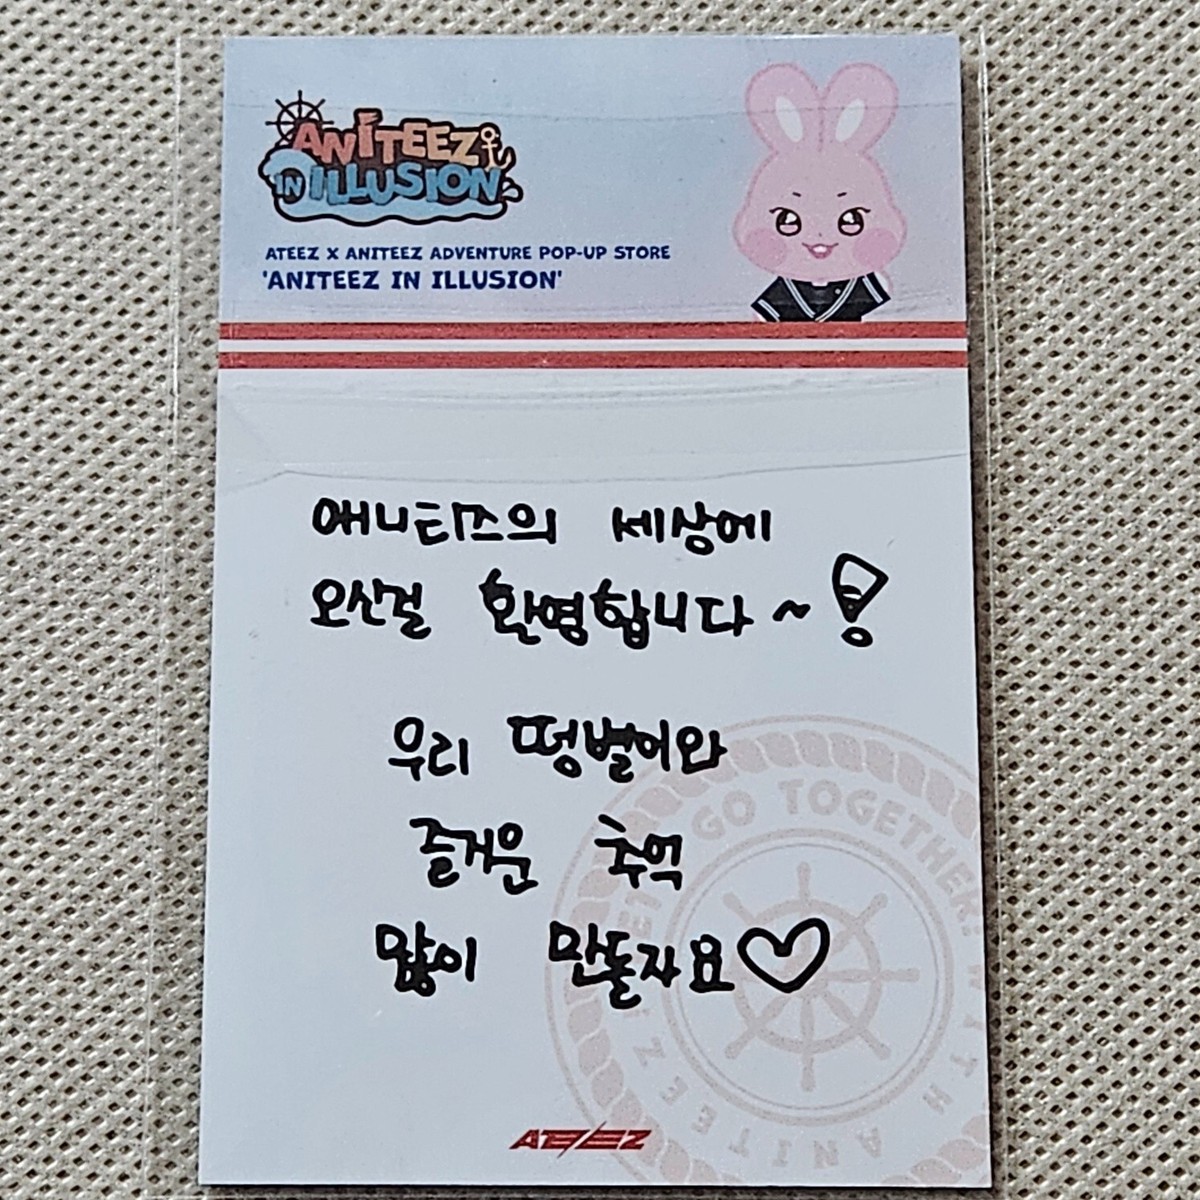 ANITEEZ
IN ILLUSION
ATEEZ X ANITEEZ ADVENTURE POP-UP STORE
'ANITEEZ IN ILLUSION'
애니티즈의 세상에
오신걸 환영합니다~!
우리 떵별이와
즐거운 추억
많이 만들자요♡
LET'S GO TOGETHER! WITH ANITEEZ
ATEEZ